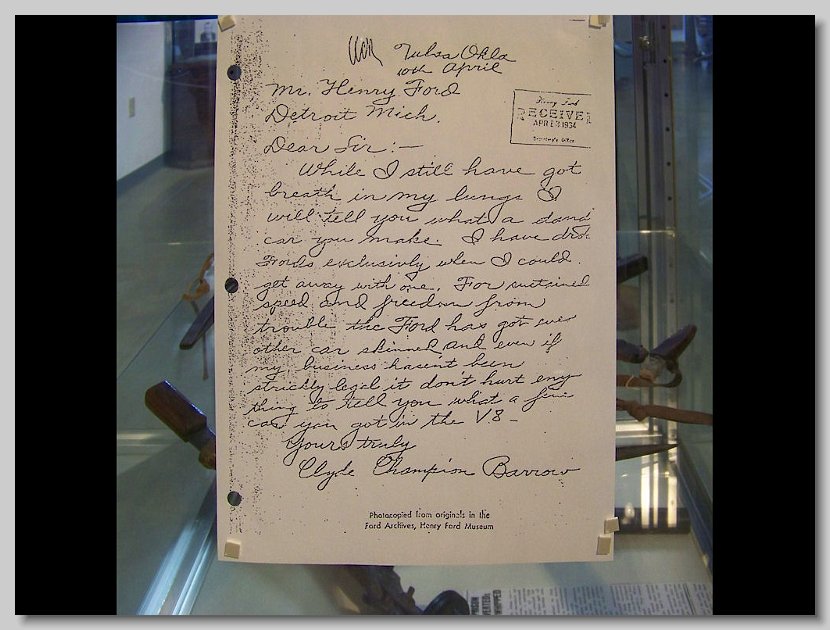 Tulsa Okla
10th April
Mr. Henry Ford
Detroit Mich.
Henry Ford
RECEIVE
APR 13 1934
Secretary's Office
Dear Sir:—
While I still have got
breath in my lungs I
will tell you what a dand
car you make. I have dro
Fords exclusivly when I could
get away with one. For sustained
speed and freedom from
trouble the Ford has got ever
other car skinned and even if
my business hasent been
strickly legal it don't hurt eny
thing to tell you what a fine
car you got in the V8 –
Yours truly
Clyde Champion Barrow
Photocopied from originals in the
Ford Archives, Henry Ford Museum